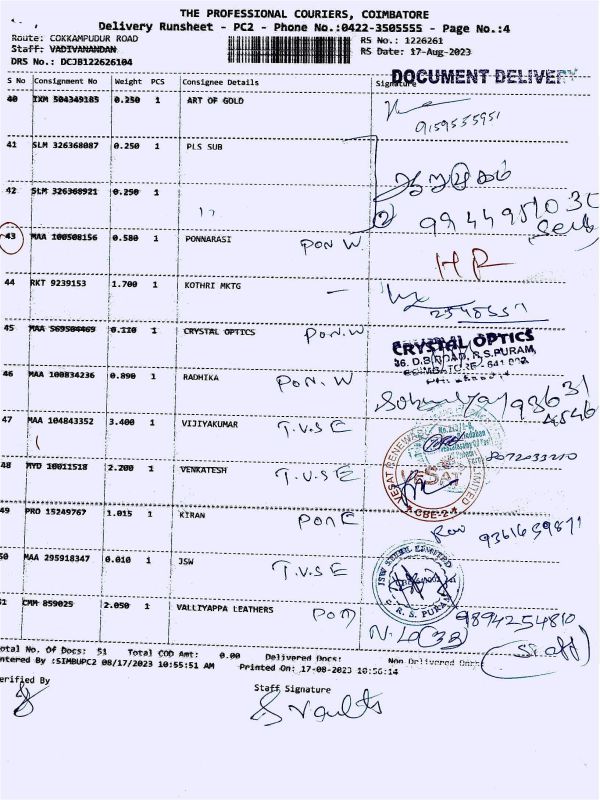 THE PROFESSIONAL COURIERS, COIMBATORE
Delivery Runsheet - PC2 - Phone No.:0422-3505555 - Page No.:4
Route: COKKAMPUDUR ROAD RS No.: 1226261
Staff: VADIVANANDAN RS Date: 17-Aug-2023
DRS No.: DCJB122626104
DOCUMENT DELIVERY
S No Consignment No Weight PCS Consignee Details Signature
40 IXM 504349185 0.250 1 ART OF GOLD
9159555951
41 SLM 326368087 0.250 1 PLS SUB
42 SLM 326368921 0.250 1 11
2
43 MAA 100508156 0.580 1 PONNARASI PON W HR
44 RKT 9239153 1.700 1 KOTHRI MKTG —
45 MAA 569504469 0.110 1 CRYSTAL OPTICS PON.W
CRYSTAL OPTICS
36, D.B.ROAD, R.S.PURAM,
COIMBATORE - 641 002
46 MAA 100834236 0.890 1 RADHIKA PON.W
93631
47 MAA 104843352 3.400 1 VIJIYAKUMAR T.V.S E
48 MYD 10011518 2.200 1 VENKATESH T.V.S E
CBE-2
49 PRO 15249767 1.015 1 KIRAN PON E
50 MAA 295918347 0.010 1 JSW T.V.S E
JSW STEEL LIMITED
R.S. PURAM
51 CMM 859025 2.050 1 VALLIYAPPA LEATHERS PON
9894254810
(Staff)
otal No. Of Docs: 51 Total COD Amt: 0.00 Delivered Docs: Non Delivered Docs:
ntered By :SIMBUPC2 08/17/2023 10:55:51 AM Printed On: 17-08-2023 10:56:14
erified By Staff Signature